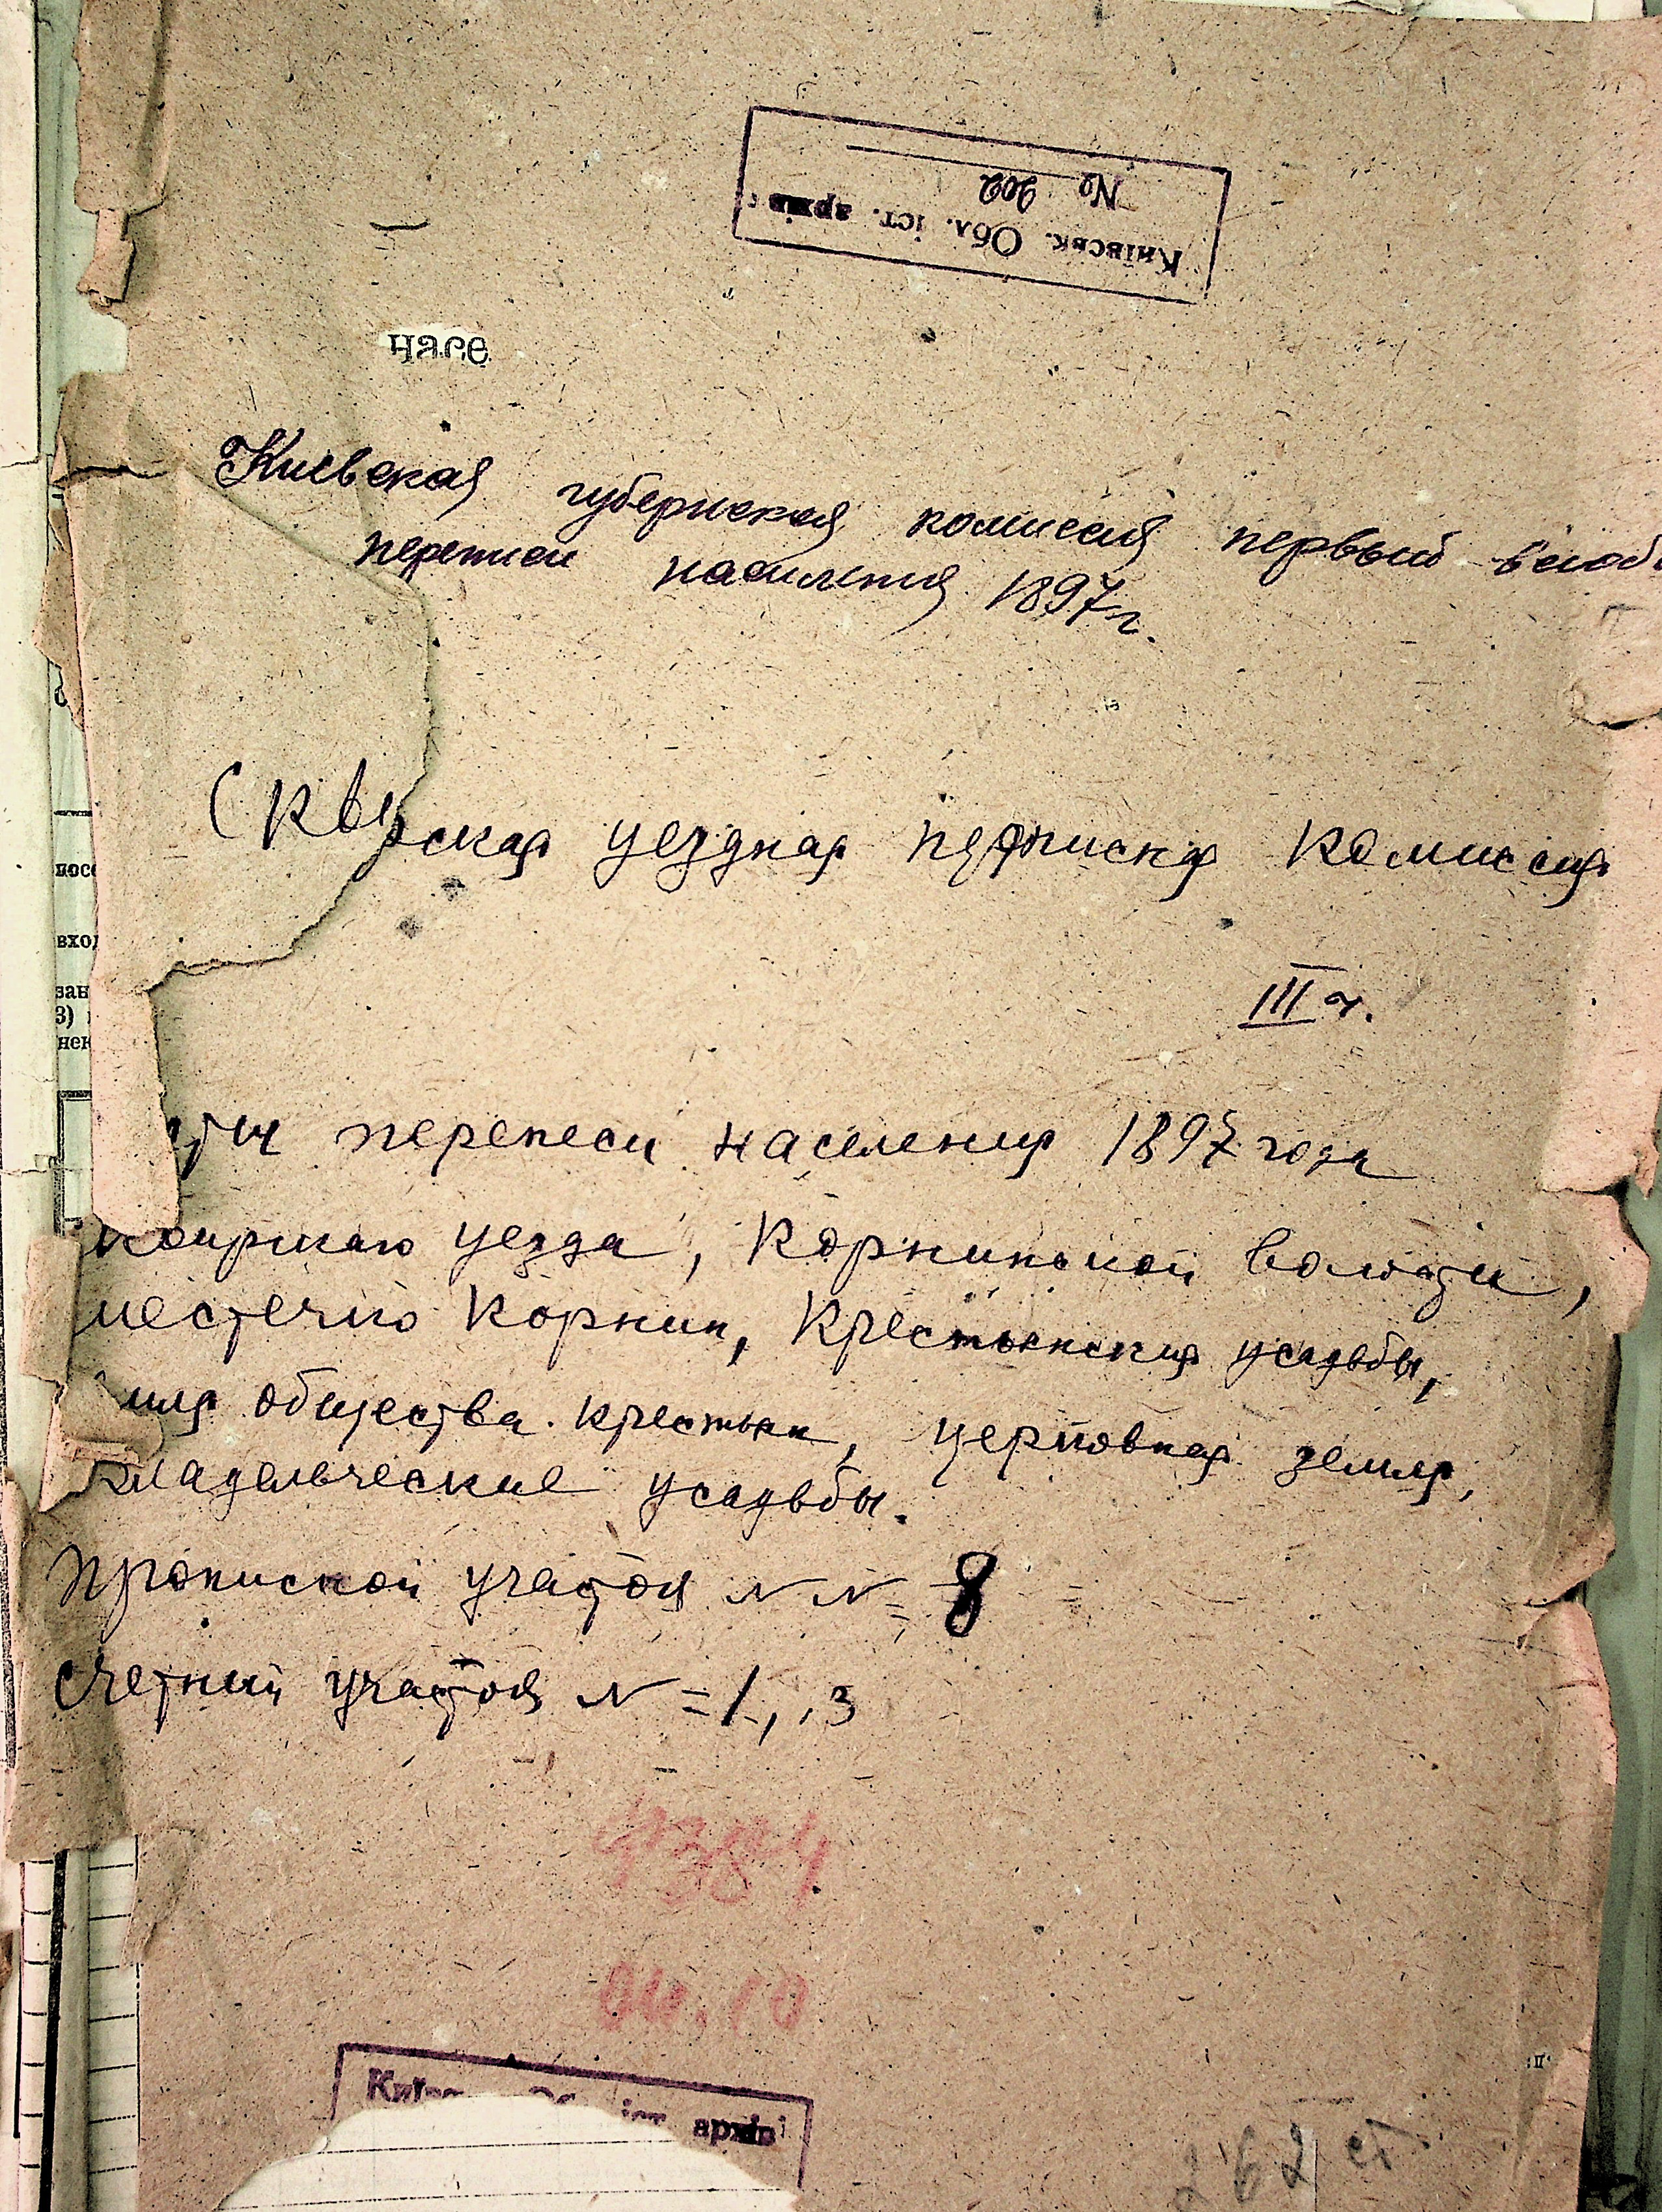 Київськ. Обл. іст. архів
№ 202
насе
Киевская губернская комиссия первый всеоб
переписи населения 1897 г.
Сквирская уездная комиссия
III ч.
переписи населения 1897 года
уезда, Корнинской волости,
местечко Корнин, Крестьянския усадьбы,
общества крестьян, церковная земля,
владельческие усадьбы.
участок NN = 8
счетный участок N = 1, 3
архів
262 ст
посе
вход
зан
3)
нек